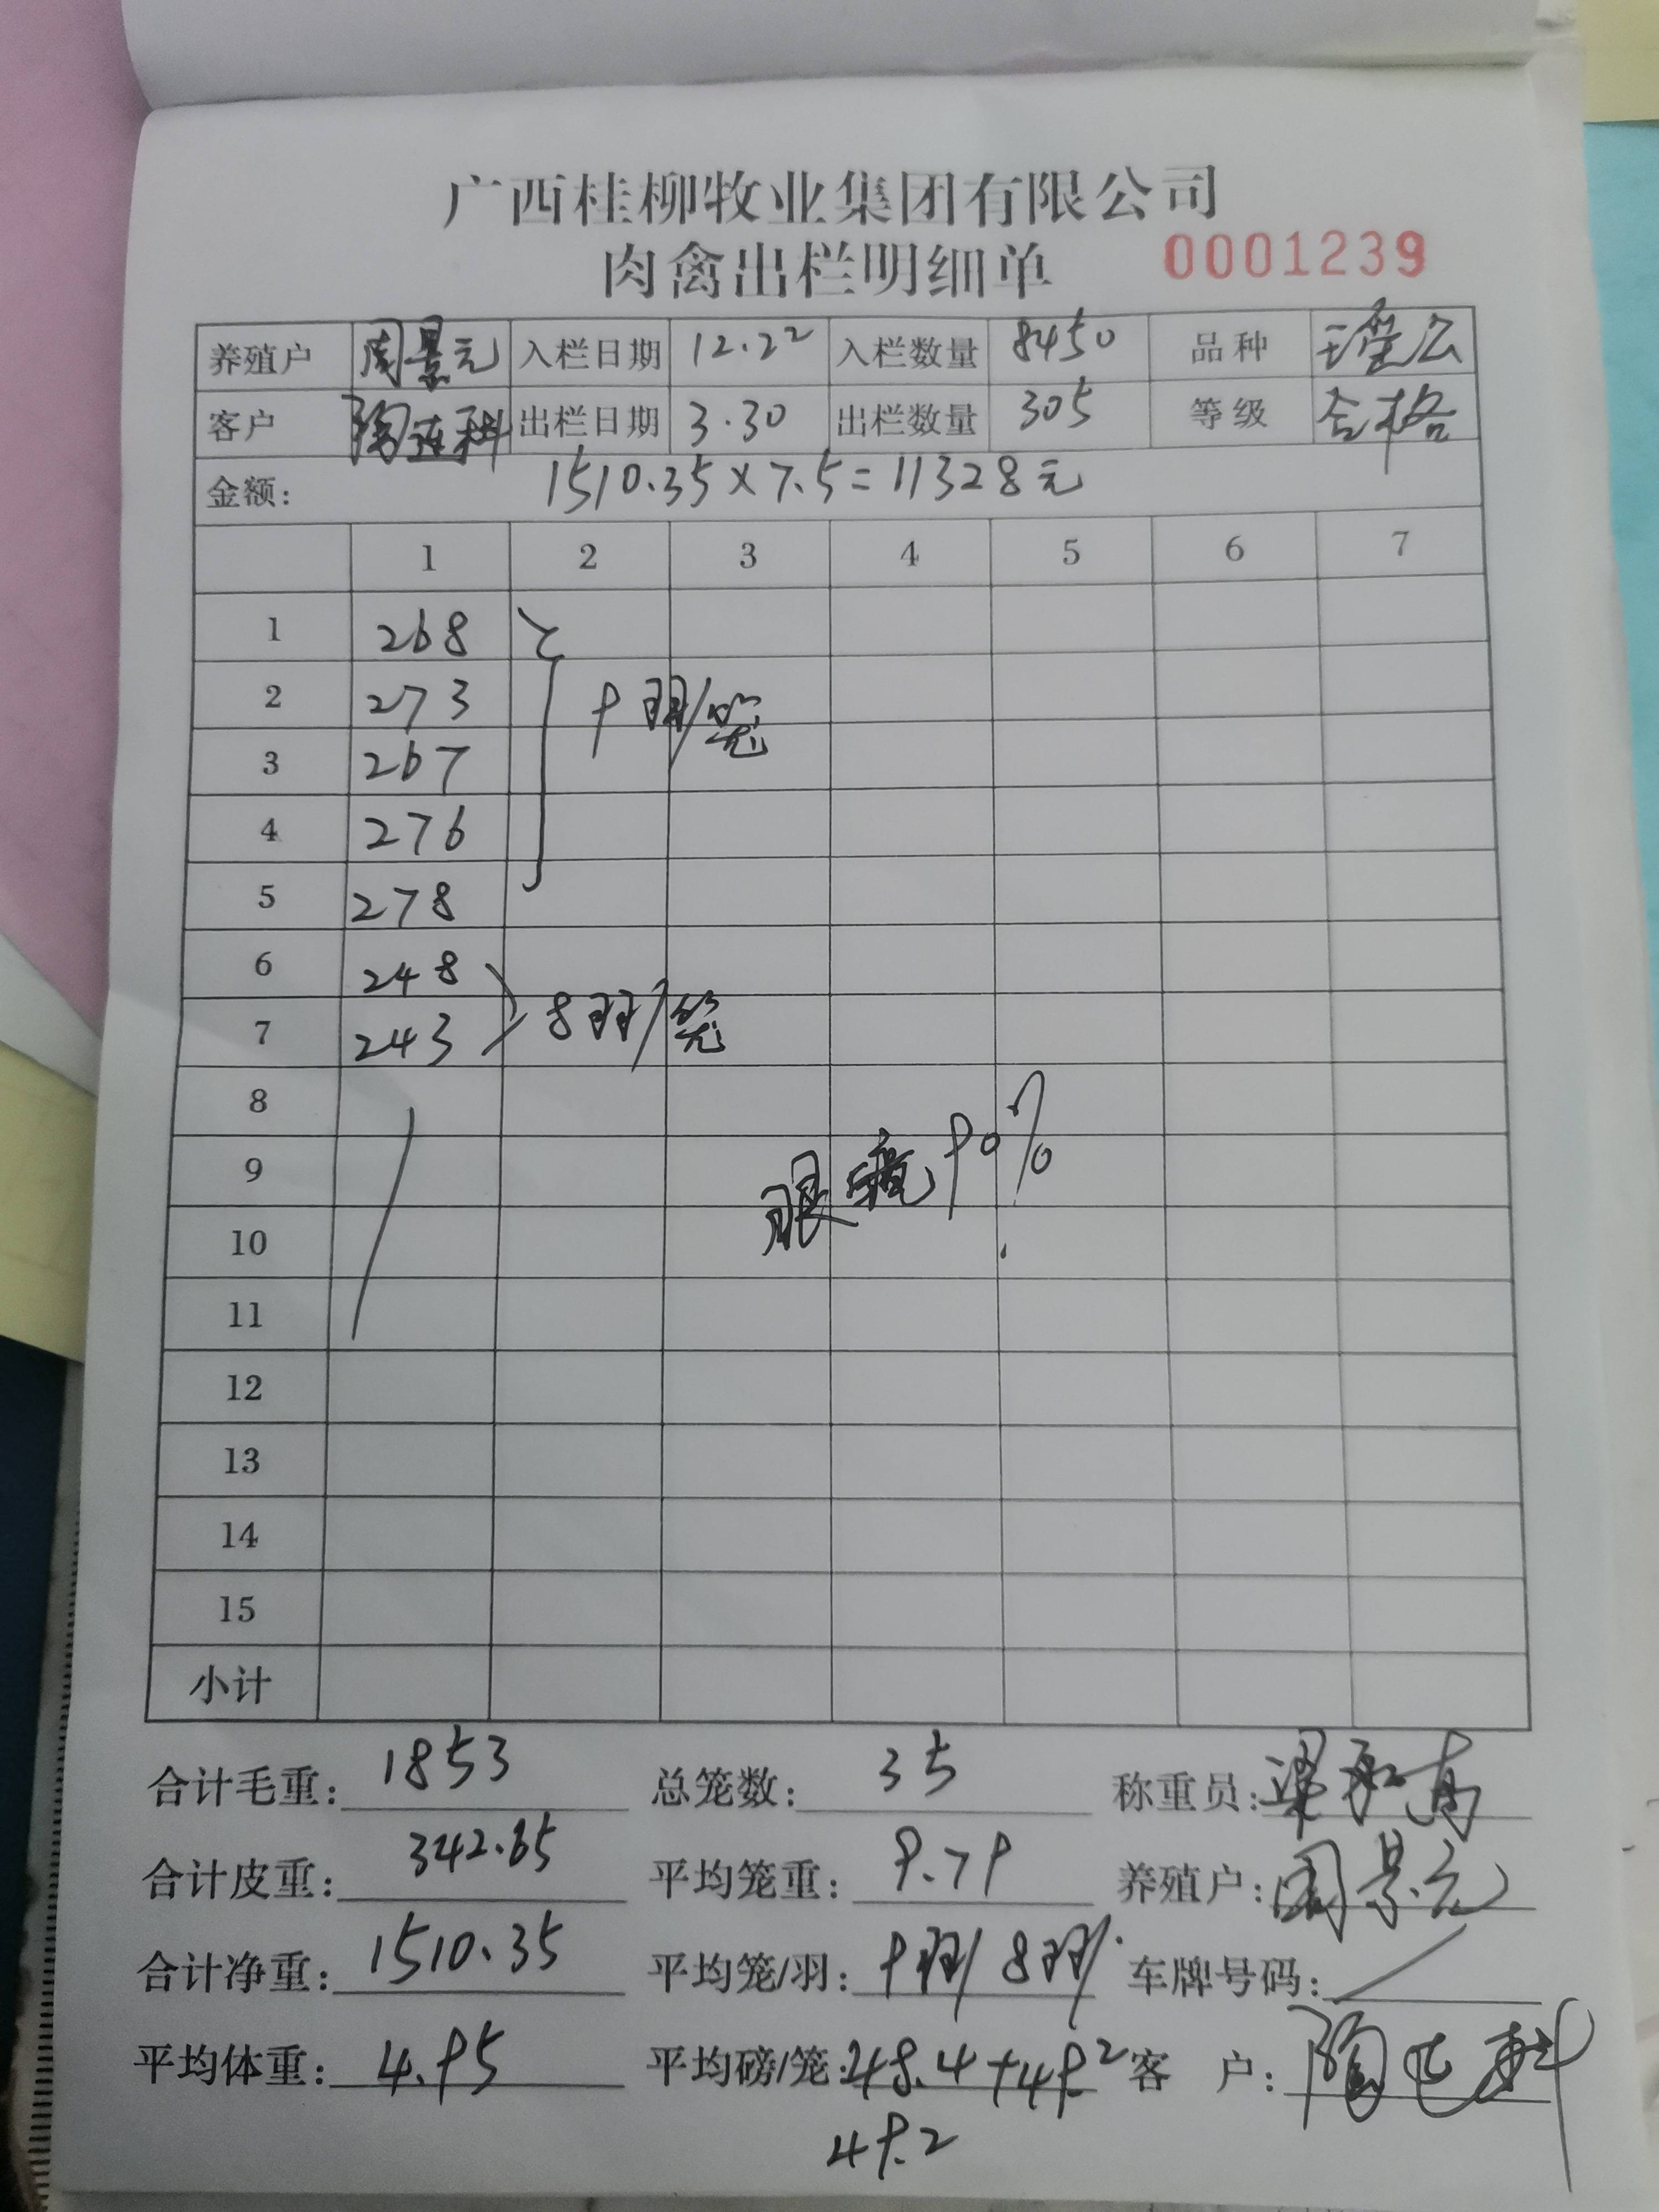 广西桂柳牧业集团有限公司
肉禽出栏明细单 0001239
养殖户 周景元 入栏日期 12.22 入栏数量 8450 品种 瑶公
客户 陶运科 出栏日期 3.30 出栏数量 305 等级 合格
金额: 1510.35×7.5=11328元
1 2 3 4 5 6 7
1 268
2 273 9羽/笼
3 267
4 276
5 278
6 248
7 243 8羽/笼
8
9 眼疵90%
10
11
12
13
14
15
小计
合计毛重: 1853 总笼数: 35 称重员:
合计皮重: 342.65 平均笼重: 9.79 养殖户: 周景元
合计净重: 1510.35 平均笼/羽: 9羽/8羽/ 车牌号码: /
平均体重: 4.95 平均磅/笼: 48.4+49.2 客 户:
49.2